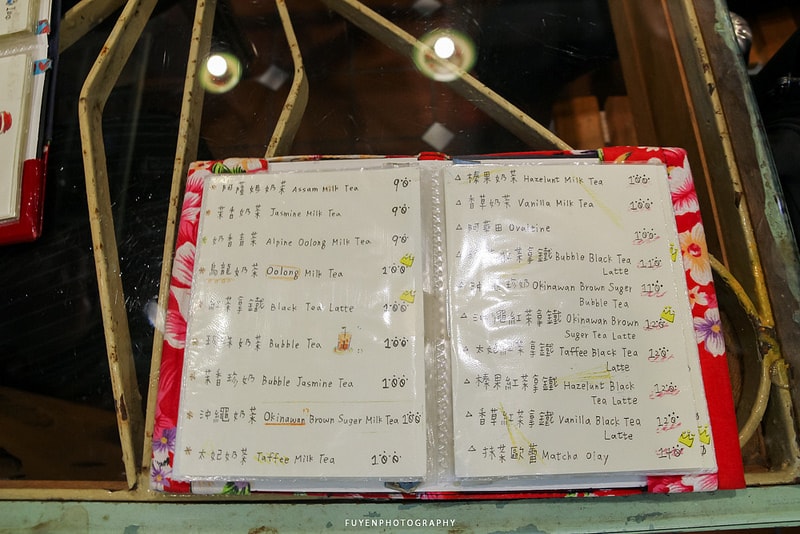 * 阿薩姆奶茶 Assam Milk Tea 90
* 茉香奶茶 Jasmine Milk Tea 90
* 奶香青茶 Alpine Oolong Milk Tea 90
* 烏龍奶茶 Oolong Milk Tea 100
* 紅茶拿鐵 Black Tea Latte 100
* 珍珠奶茶 Bubble Tea 100
* 茉香珍奶 Bubble Jasmine Tea 100
* 沖繩奶茶 Okinawan Brown Suger Milk Tea 100
* 太妃奶茶 Taffee Milk Tea 100
△ 榛果奶茶 Hazelunt Milk Tea 100
△ 香草奶茶 Vanilla Milk Tea 100
△ 阿華田 Ovaltine 100
紅茶拿鐵 Bubble Black Tea 110
Latte
珍奶 Okinawan Brown Suger 110
Bubble Tea
△ 沖繩紅茶拿鐵 Okinawan Brown 120
Suger Tea Latte
△ 太妃紅茶拿鐵 Taffee Black Tea 120
Latte
△ 榛果紅茶拿鐵 Hazelunt Black 120
Tea Latte
△ 香草紅茶拿鐵 Vanilla Black Tea 120
Latte
△ 抹茶歐蕾 Matcha Olay 140
FUYENPHOTOGRAPHY